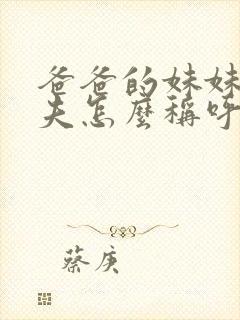 爸爸的妹妹
夫怎麼稱呼
蔡庚